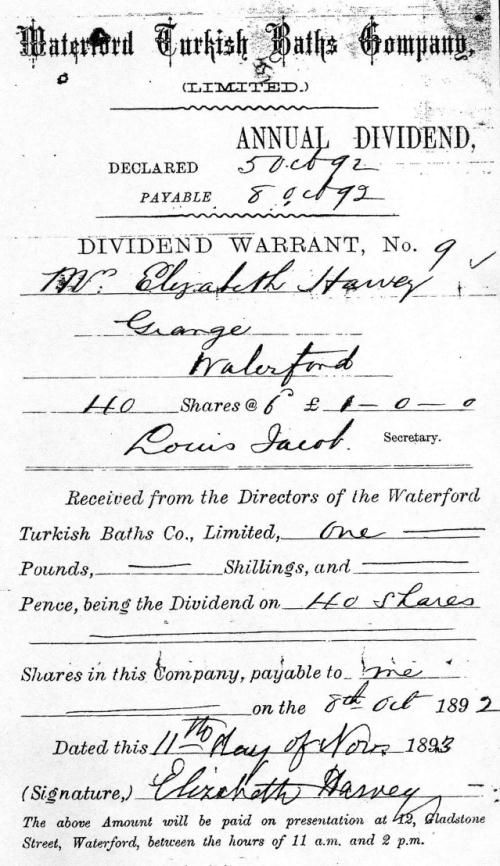 Waterford Turkish Baths Company,
(LIMITED.)
ANNUAL DIVIDEND,
DECLARED 5 Oct 92
PAYABLE 8 Oct 92
DIVIDEND WARRANT, No. 9
Mrs Elizabeth Harvey
Grange
Waterford
40 Shares @ 6d £ 1 - 0 - 0
Louis Jacob. Secretary.
Received from the Directors of the Waterford
Turkish Baths Co., Limited, One
Pounds, Shillings, and
Pence, being the Dividend on 40 Shares
Shares in this Company, payable to me
on the 8th Oct 1892
Dated this 11th day of Novr 1893
(Signature,) Elizabeth Harvey
The above Amount will be paid on presentation at 12, Gladstone
Street, Waterford, between the hours of 11 a.m. and 2 p.m.